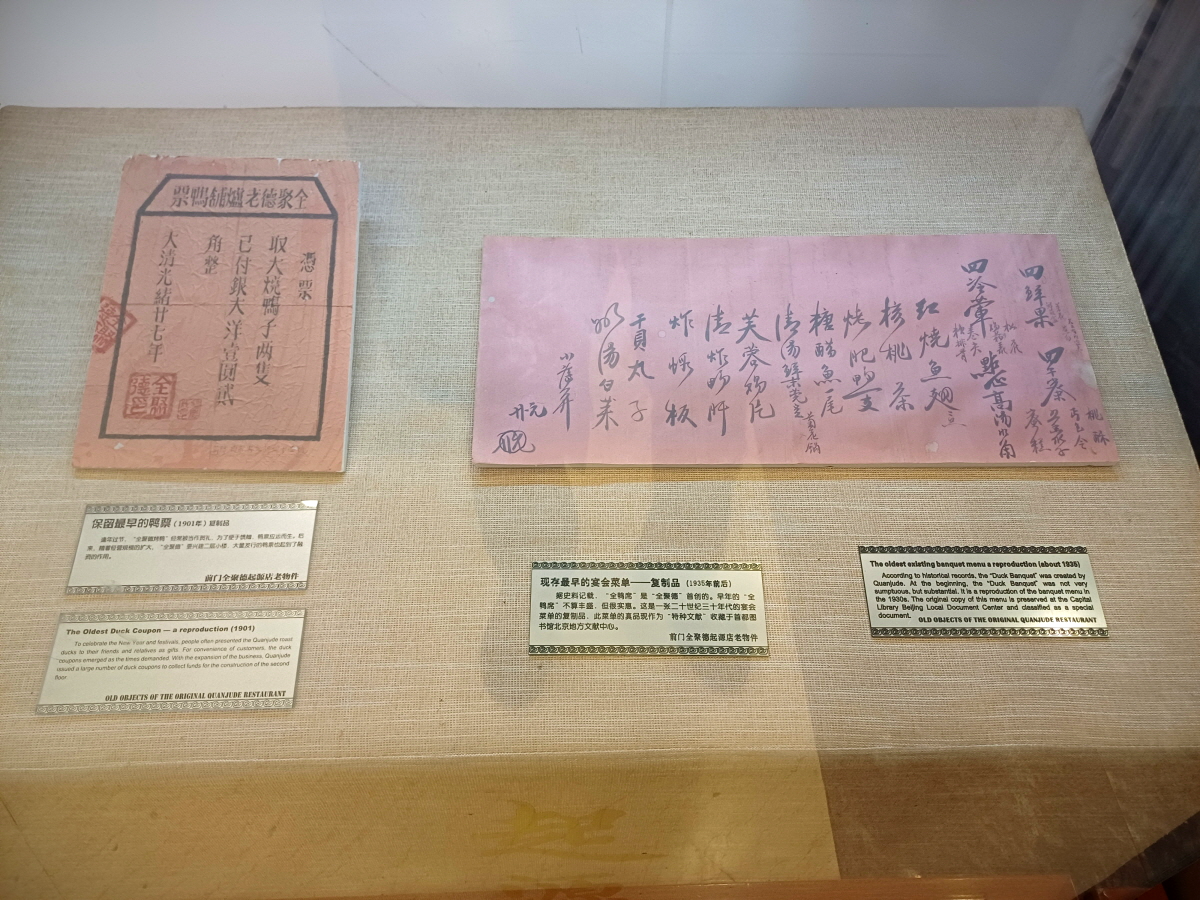 全聚德老爐鋪鴨票
憑票
取大燒鴨子两隻
已付銀大洋壹圆贰
角整
大清光緒廿七年
全聚
保留最早的鸭票（1901年）复制品
逢年过节，“全聚德烤鸭”经常被当作贺礼，为了便于馈赠，鸭票应运而生。后
来，随着经营规模的扩大，“全聚德”要兴建二层小楼，大量发行的鸭票也起到了融
资的作用。
前门全聚德起源店老物件
The Oldest Duck Coupon — a reproduction (1901)
To celebrate the New Year and festivals, people often presented the Quanjude roast
ducks to their friends and relatives as gifts. For convenience of customers, the duck
coupons emerged as the times demanded. With the expansion of the business, Quanjude
issued a large number of duck coupons to collect funds for the construction of the second
floor.
OLD OBJECTS OF THE ORIGINAL QUANJUDE RESTAURANT
四鲜果
四干菓
桃酥
四冷葷
點心高湯水角
红燒魚翅
核桃茶
烧肥鸭
糖醋魚尾
清湯
芙蓉鸡片
清炸鸭肝
炸虾板
干貝丸子
奶湯白菜
卅元
现存最早的宴会菜单——复制品（1935年前后）
据史料记载，“全鸭席”是“全聚德”首创的。早年的“全
鸭席”不算丰盛，但很实惠。这是一张二十世纪三十年代的宴会
菜单的复制品，此菜单的真品现作为“特种文献”收藏于首都图
书馆北京地方文献中心。
前门全聚德起源店老物件
The oldest existing banquet menu a reproduction (about 1935)
According to historical records, the "Duck Banquet" was created by
Quanjude. At the beginning, the "Duck Banquet" was not very
sumptuous, but substantial. It is a reproduction of the banquet menu in
the 1930s. The original copy of this menu is preserved at the Capital
Library Beijing Local Document Center and classified as a special
document.
OLD OBJECTS OF THE ORIGINAL QUANJUDE RESTAURANT